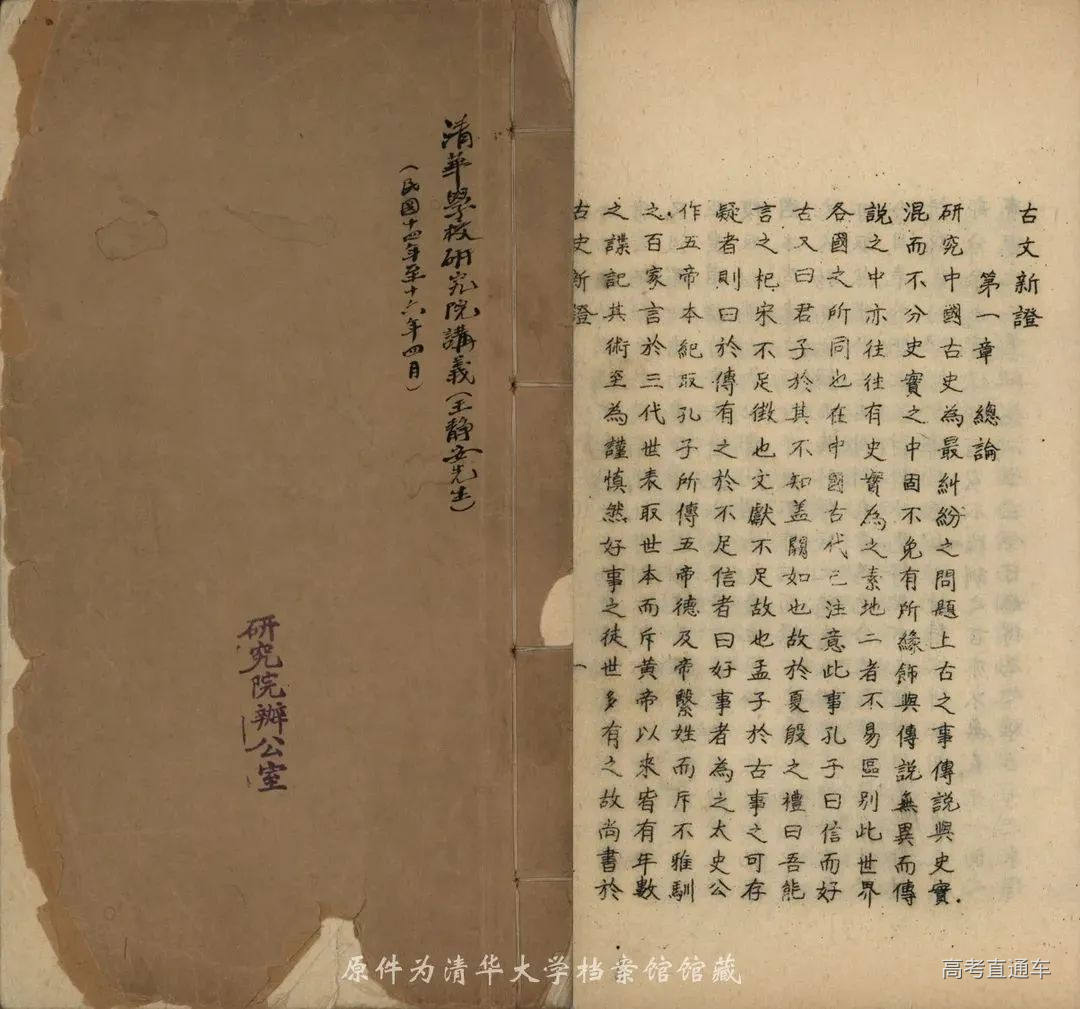 清華學校研究院講義（王靜安先生）
（民國十四年至十六年四月）
研究院辦公室
古文新證
第一章 總論
研究中國古史為最糾紛之問題上古之事傳說與史實
混而不分史實之中固不免有所緣飾與傳說無異而傳
說之中亦往往有史實為之素地二者不易區別此世界
各國之所同也在中國古代已注意此事孔子曰信而好
古又曰君子於其不知蓋闕如也故於夏殷之禮曰吾能
言之杞宋不足徵也文獻不足故也孟子於古事之可存
疑者則曰於傳有之於不足信者曰好事者為之太史公
作五帝本紀取孔子所傳五帝德及帝繫姓而斥不雅馴
之百家言於三代世表取世本而斥黃帝以來皆有年數
之諜記其術至為謹慎然好事之徒世多有之故尚書於
古史新證
一
原件为清华大学档案馆馆藏
高考直通车